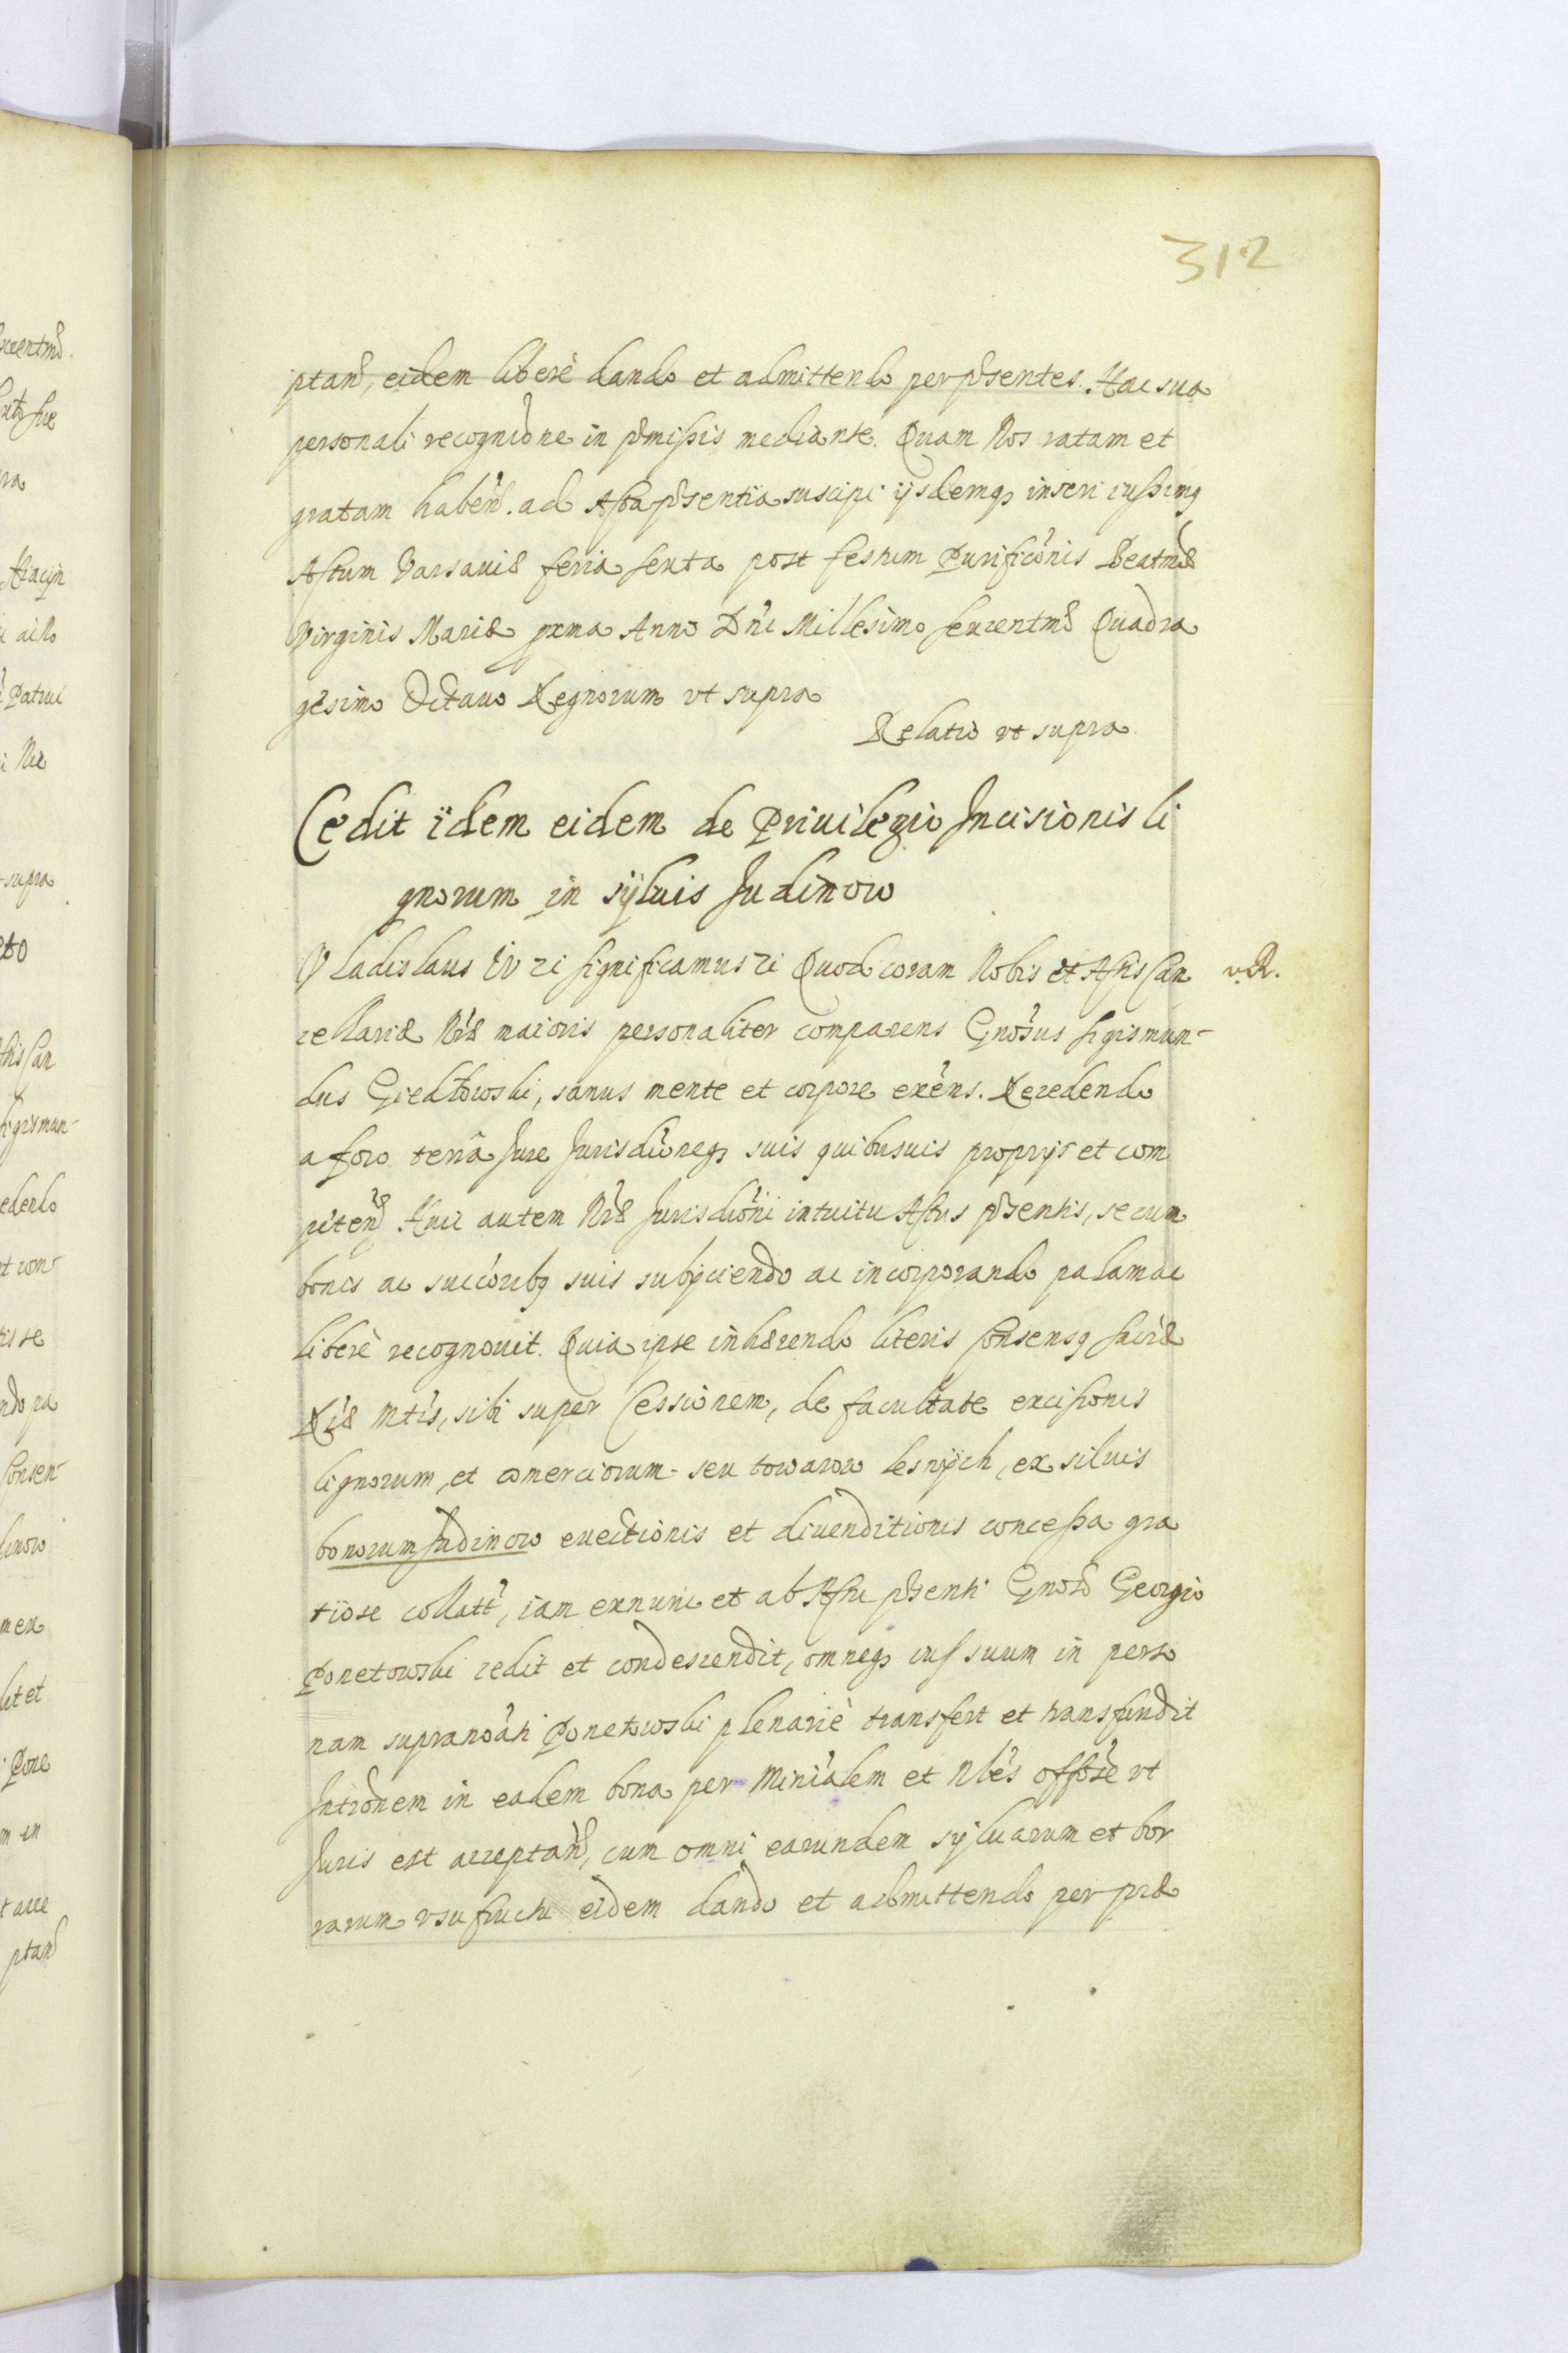 312
ptand, eidem liberè dando et admittendo per pñsentes. Hac sua
personali recognitione in pmissis mediante. Quam Nos ratam et
gratam habeñ. ad Acta pñsentia suscipi ijsdemq inseri iussimq
Actum Varsauiæ feria sexta post festum Purificõnis Beatmæ
Virginis Mariæ pxma Anno Dñi Millesimo sexcentmo Quadra
gesimo Octauo Regnorum vt supra
Relatio vt supra.
Cedit idem eidem de Priuilegio Incisionis li
gnorum in syluis Judinow
Vladislaus IV etc significamus etc Quod coram Nobis et Actis Can
v.R.
cellariæ Nræ maioris personaliter comparens Gnosus Sigismun-
dus Giedtowski, sanus mente et corpore exens. Recedendo
a foro terra Jure Jurisdioneq suis quibusuis proprijs et com
petend Huic autem Nræ Jurisdioni intuitu Actus pñsentis, se cum
bonis ac succorebq suis subijciendo ac incorporando palam ac
liberè recognouit. Quia ipse inhærendo literis Consensq Sacræ
Riæ Mtis, sibi super Cessionem, de facultate excisionis
lignorum, et comerciorum seu towarow lesnÿch, ex siluis
bonorum Judinow euectionis et diuenditionis concessa gra
tiose collatt, iam exnunc et ab Actu pñsenti Gnoso Georgio
Ponetowski cedit et condescendit, omneq ius suum in perso
nam supranoati Ponetowski plenariè transfert et transfundit
Intronem in eadem bona per Minialem et Nbles offose vt
Juris est acceptand, cum omni earundem syluarum et bor
rarum vsufructu eidem dando et admittendo per præ